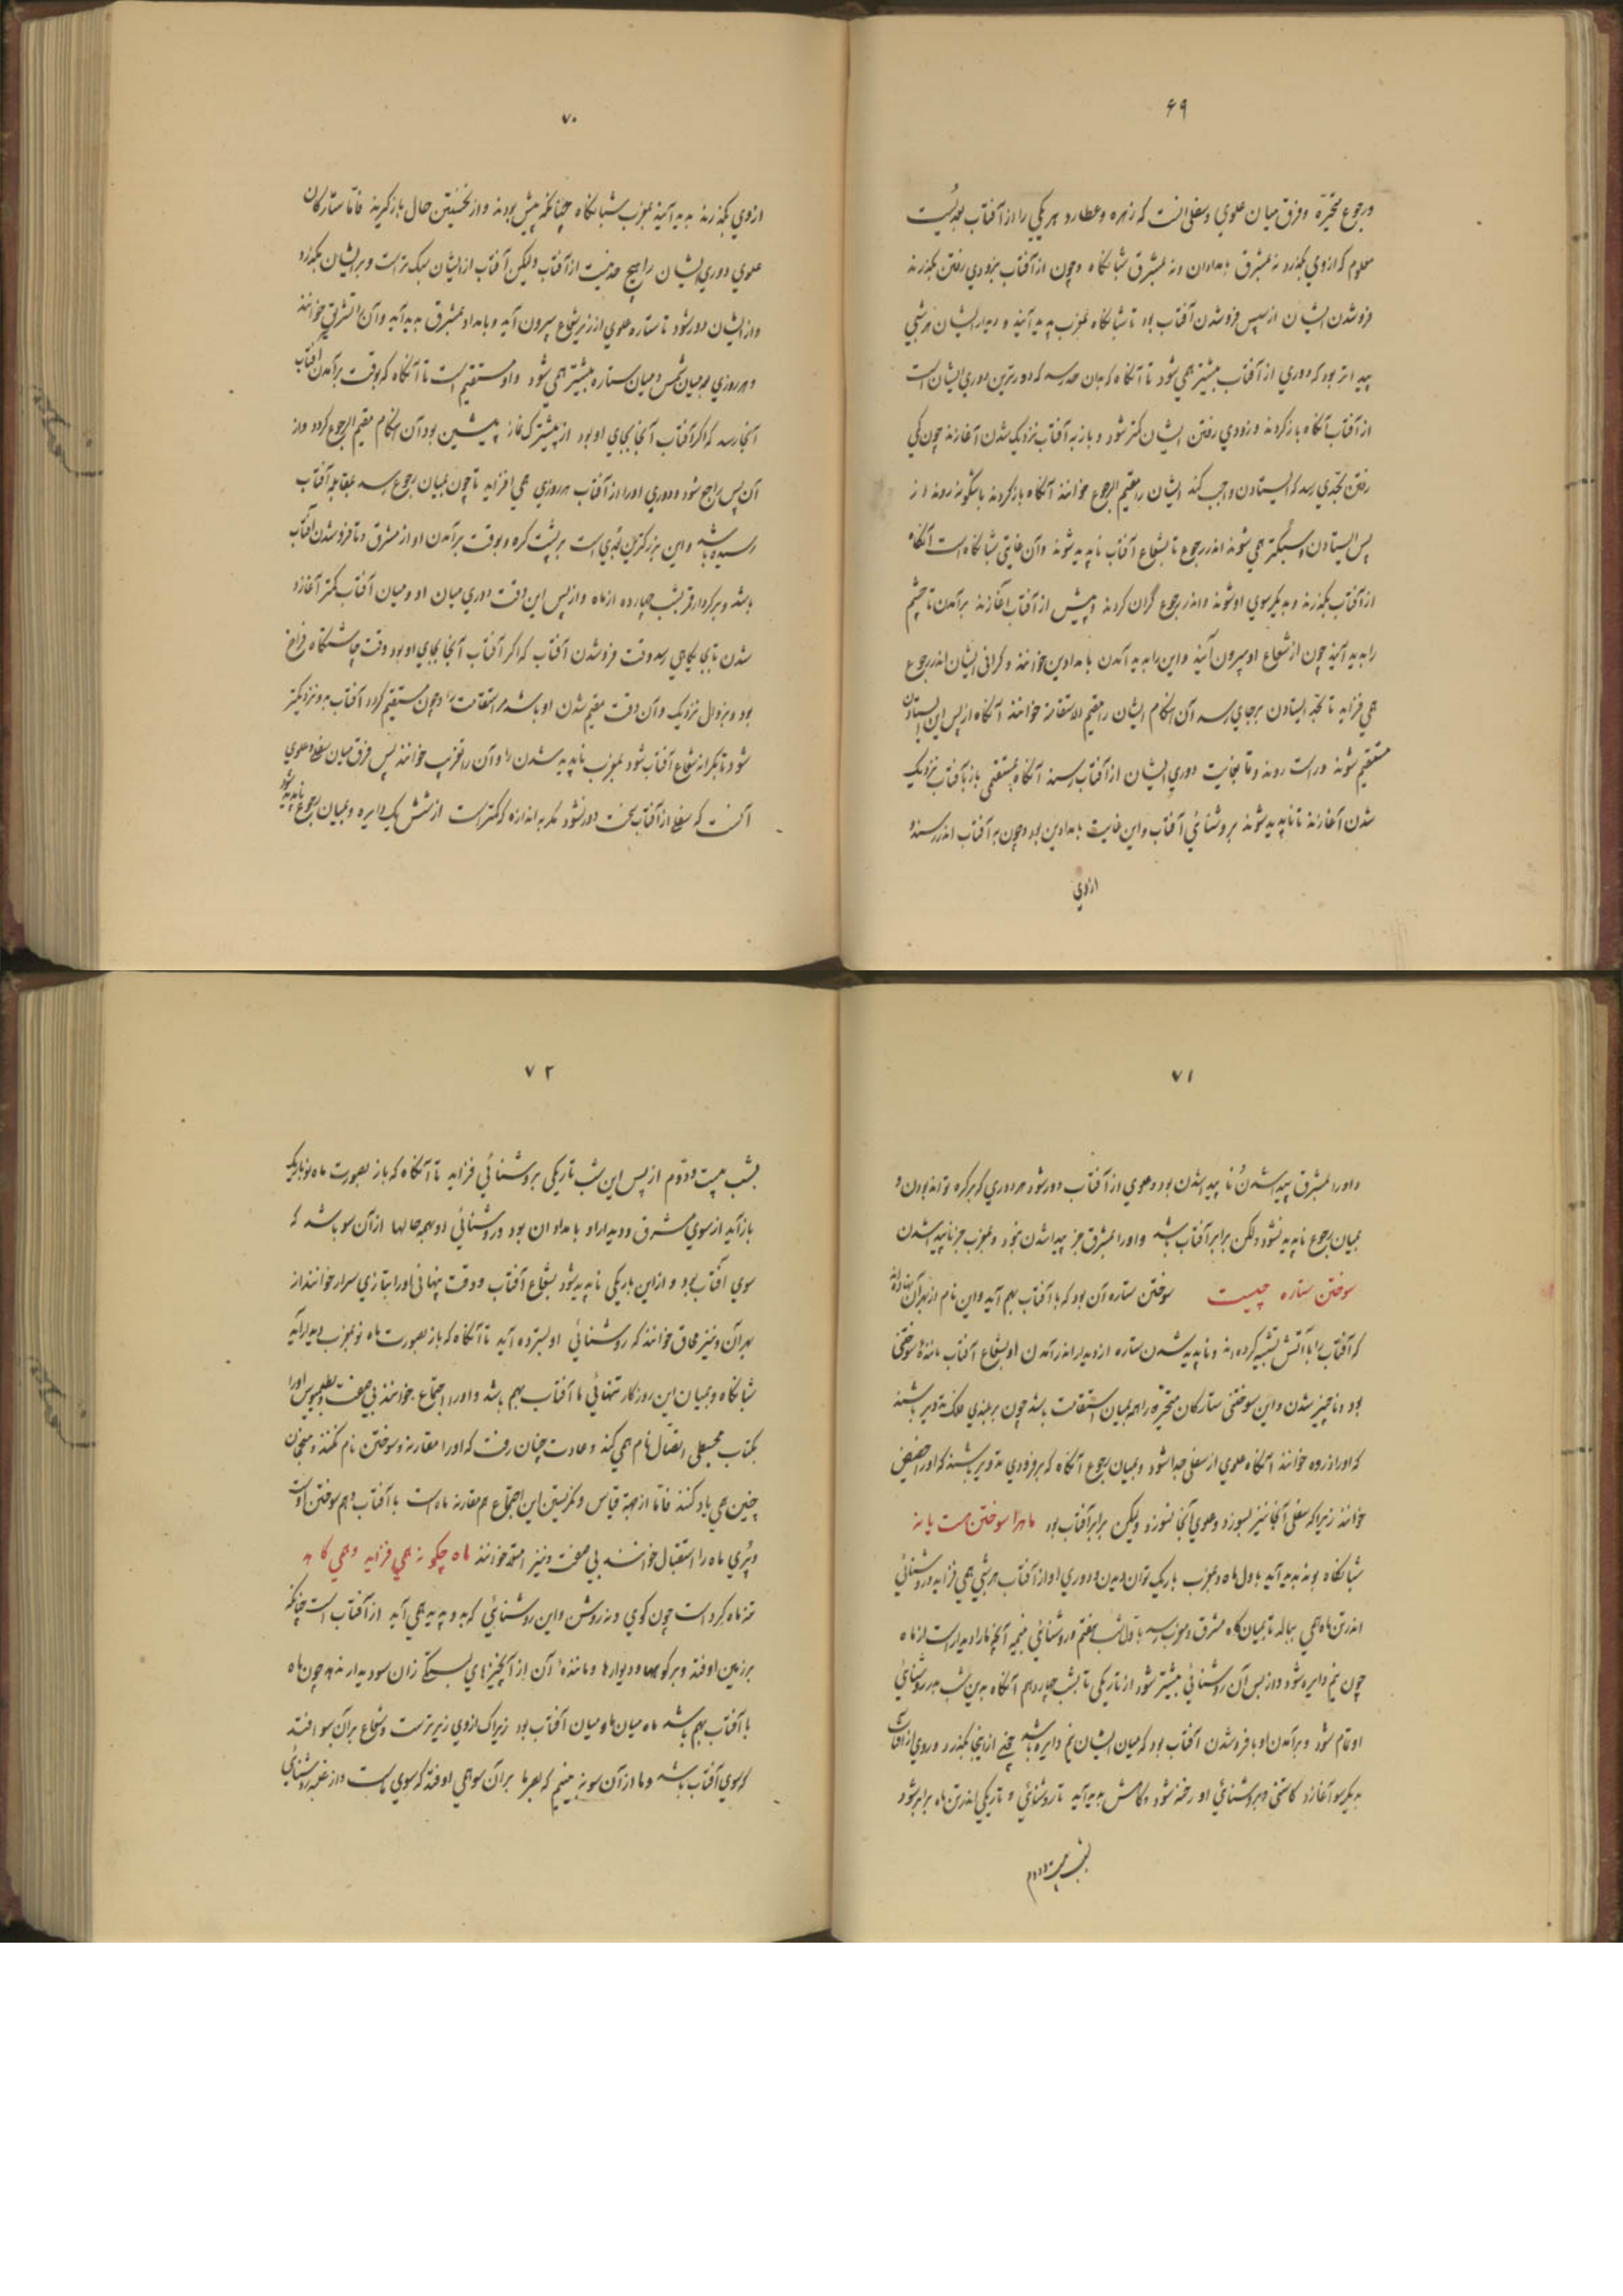 ۶۹
ورجوع متحیّره وفرق میان علوی وسفلی آنست که زهره وعطارد هر یکی را از آفتاب بعدیست
معلوم که ازوی نگذرد نه بمشرق بامدادان ونه بمشرق شبانگاه وچون از آفتاب بزودی رفتن بگذرند
فروشدن ایشان از سپس فروشدن آفتاب بود تا شبانگاه بمغرب پدید آیند و دیدار ایشان هر شبی
پیداتر بود که دوری از آفتاب بیشتر همی شود تا آنگاه که بدان حد رسد که دورترین دوری ایشان است
از آفتاب آنگاه بازگردند و زودی رفتن ایشان کمتر شود و باز به آفتاب نزدیک شدن آغازند چون کمی
رفتن بحدّی رسد که ایستادن واجب کند ایشان را مقیم للرجوع خوانند آنگاه بازگردند باشگونه روند و از
پس ایستادن سبکتر همی شوند اندر رجوع تا بشعاع آفتاب ناپدید شوند وآن غایتی شبانگاه است آنگاه
از آفتاب بگذرند و بدیگر سوی او شوند واندر رجوع گران گردند و پیش از آفتاب آغازند برآمدن تا چشم
را پدید آیند چون از شعاع او بیرون آیند واین را پدید آمدن بامدادین خوانند و گرانی ایشان اندر رجوع
همی فزاید تا بحد ایستادن برجای رسد آن هنگام ایشان را مقیم للاستقامة خوانند آنگاه از پس این ایستادن
مستقیم شوند وراست روند وتا بغایت دوری ایشان از آفتاب رسند آنگاه بمستقیمی باز بآفتاب نزدیک
شدن آغازند تا ناپدید شوند بروشنائی آفتاب واین غایت بامدادین بود وچون به آفتاب اندر رسند و
ازوی
۷۰
ازوی بگذرند پدید آیند بمغرب شبانگاه چنانکه پیش بودند واز نخستین حال بازگیرند فامّا ستارگان
علوی دوری ایشان را هیچ حد نیست از آفتاب ولیکن آفتاب از ایشان سبک تر است وبر ایشان بگذرد
واز ایشان دور شود تا ستاره علوی از زیر شعاع بیرون آید و بامداد بمشرق پدید آید وآن را تشریق خوانند
وهر روزی بعد میان شمس ومیان ستاره بیشتر همی شود واو مستقیم است تا آنگاه که بوقت برآمدن آفتاب
آنجا رسد که اگر آفتاب آنجا بجای او بود از پیشترک نماز پیشین بود آن هنگام مقیم للرجوع گردد واز
آن پس راجع شود ودوری او را از آفتاب هر روزی همی افزاید تا چون بمیان رجوع رسد بمقابله آفتاب
رسیده باشد واین بزرگترین بعدی است بر پشت کره وبوقت برآمدن او از مشرق وتا فروشدن آفتاب
باشد وبر کردار قمر بشب چهارده از ماه واز پس این وقت دوری میان او ومیان آفتاب کمتر آغازد
شدن تا بجایگاهی رسد وقت فروشدن آفتاب که اگر آفتاب آنجا بجای او بود وقت چاشتگاه فراخ
بود وبزوال نزدیک وآن وقت مقیم شدن او باشد مر استقامت را وچون مستقیم گردد آفتاب بدو نزدیکتر
شود تا بکرانه شعاع آفتاب شود بمغرب ناپدید شدن را وآن را تغریب خوانند پس فرق میان سفلی وعلوی
آنست که سفلی از آفتاب سخت دور نشود مگر به اندازه که کمتر است از شش یک دایره وبمیان رجوع ناپدید شود
۷۱
واورا بمشرق پیدا شدن وناپیدا شدن بود وعلوی از آفتاب دور شود هر دوری که بر کره تواند بودن و
بمیان رجوع ناپدید نشود ولکن برابر آفتاب باشد واورا بمشرق جز پیدا شدن نبود وبمغرب جز ناپیدا شدن
سوختن ستاره چیست سوختن ستاره آن بود که با آفتاب بهم آید واین نام از بهر آن نهاده اند
که آفتاب را باآتش تشبیه کرده اند وناپدید شدن ستاره از دیدار اندر آمدن او بشعاع آفتاب ماننده سوختنی
بود وناچیز شدن واین سوختنی ستارگان متحیّره را همه بمیان استقامت باشد چون بر بلندی فلک تدویر باشند
که اورا ذروه خوانند آنگاه علوی از سفلی جدا شود وبمیان رجوع آنگاه که بر فرودی تدویر باشند که اورا حضیض
خوانند زیرا که سفلی آنجا نیز بسوزد وعلوی آنجا نسوزد ولیکن برابر آفتاب بود ماه را سوختن هست یا نه
شبانگاه پدید آید باول ماه وبمغرب باریک توان دیدن ودوری او از آفتاب هر شبی همی فزاید وروشنائی
اندر تن ماه همی ببالد تا بمیان گاه مشرق ومغرب رسد باول شب هفتم وروشنائی بنیمه آنچه مارا دیدار است از ماه
چون نیم دایره شود واز پس آن روشنائی بیشتر شود از تاریکی تا بشب چهاردهم آنگاه بدین شب بدر روشنائی
او تمام شود وبرآمدن او با فروشدن آفتاب بود که میان ایشان نیم دایره باشد چون ازینجا بگذرد وروی از آفتاب
بدیگر سو آغازد کاستنی وبروشنائی او رخنه شود وکاهش پدید آید تا روشنائی و تاریکی اندر تن ماه برابر شود
بشب بیست ودوم
۷۲
بشب بیست ودوّم از پس این شب تاریکی بروشنائی فزاید تا آنگاه که باز بصورت ماه نو باریک
باز آید از سوی مشرق ودیدار او بامدادان بود وروشنائی او بهمه حالها از آن سو باشد که
سوی آفتاب بود و ازاین باریکی ناپدید شود بشعاع آفتاب ووقت پنهانی اورا بتازی سرار خوانند از
بهر آن ونیز محاق خوانند که روشنائی او بسترده آید تا آنگاه که باز بصورت ماه نو بمغرب دیدار آید
شبانگاه وبمیان این روزگار تنهائی ما آفتاب بهم باشد واورا اجتماع خوانند بی صفت وبطلمیوس اورا
بکتاب مجسطی اتصال نام همی کند وعادت چنان رفت که اورا مقارنه وسوختن نام نکنند ومنجمان
چنین همی یاد کنند فامّا از جهة قیاس ونگریستن این اجتماع هم مقارنه ماه است با آفتاب وهم سوختن اوست
وپُری ماه را استقبال خوانند بی صفت ونیز امتلا خوانند ماه چگونه همی فزاید وهمی کاهد
تنه ماه گرد است چون گوی ونه روشن واین روشنائی که بدو پدید همی آید از آفتاب است چنانکه
بر زمین اوفتد وبر کوهها ودیوارها ومانندهٔ آن از آنچیزهای بستگی زان سو دیدار ندهد چون ماه
با آفتاب بهم باشد ماه میان ما ومیان آفتاب بود زیراک ازوی زیرترست وشعاع برآن سو افتد
که سوی آفتاب باشد وما از آن سو نه بینیم که بصر ما بر آن سو همی اوفتد که سوی ماست واز غلبه روشنائی